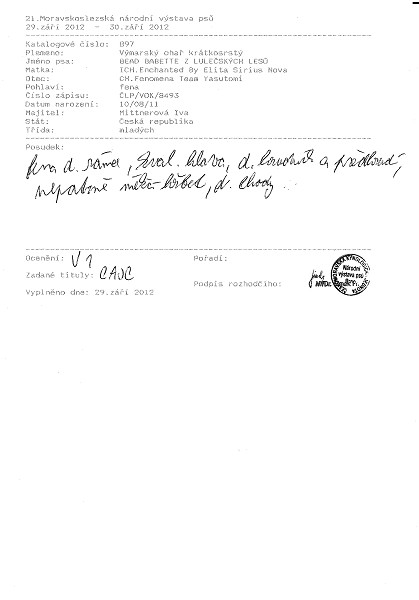 21.Moravskoslezská národní výstava psů
29.září 2012 - 30.září 2012
Katalogové číslo: 897
Plemeno: Výmarský ohař krátkosrstý
Jméno psa: BEAD BABETTE Z LULEČSKÝCH LESŮ
Matka: ICH.Enchanted By Elita Sirius Nova
Otec: CH.Fenomena Team Yasutomi
Pohlaví: fena
Číslo zápisu: ČLP/VOK/8493
Datum narození: 10/08/11
Majitel: Mittnerová Iva
Stát: Česká republika
Třída: mladých
Posudek:
fena d. rámce, kval. hlava, d. a předhrudí,
nepatrně měkčí hřbet, d. chody ...
Ocenění: V 1
Pořadí:
Zadané tituly: CAJC
Podpis rozhodčího:
Národní
výstava psů
Vyplněno dne: 29.září 2012